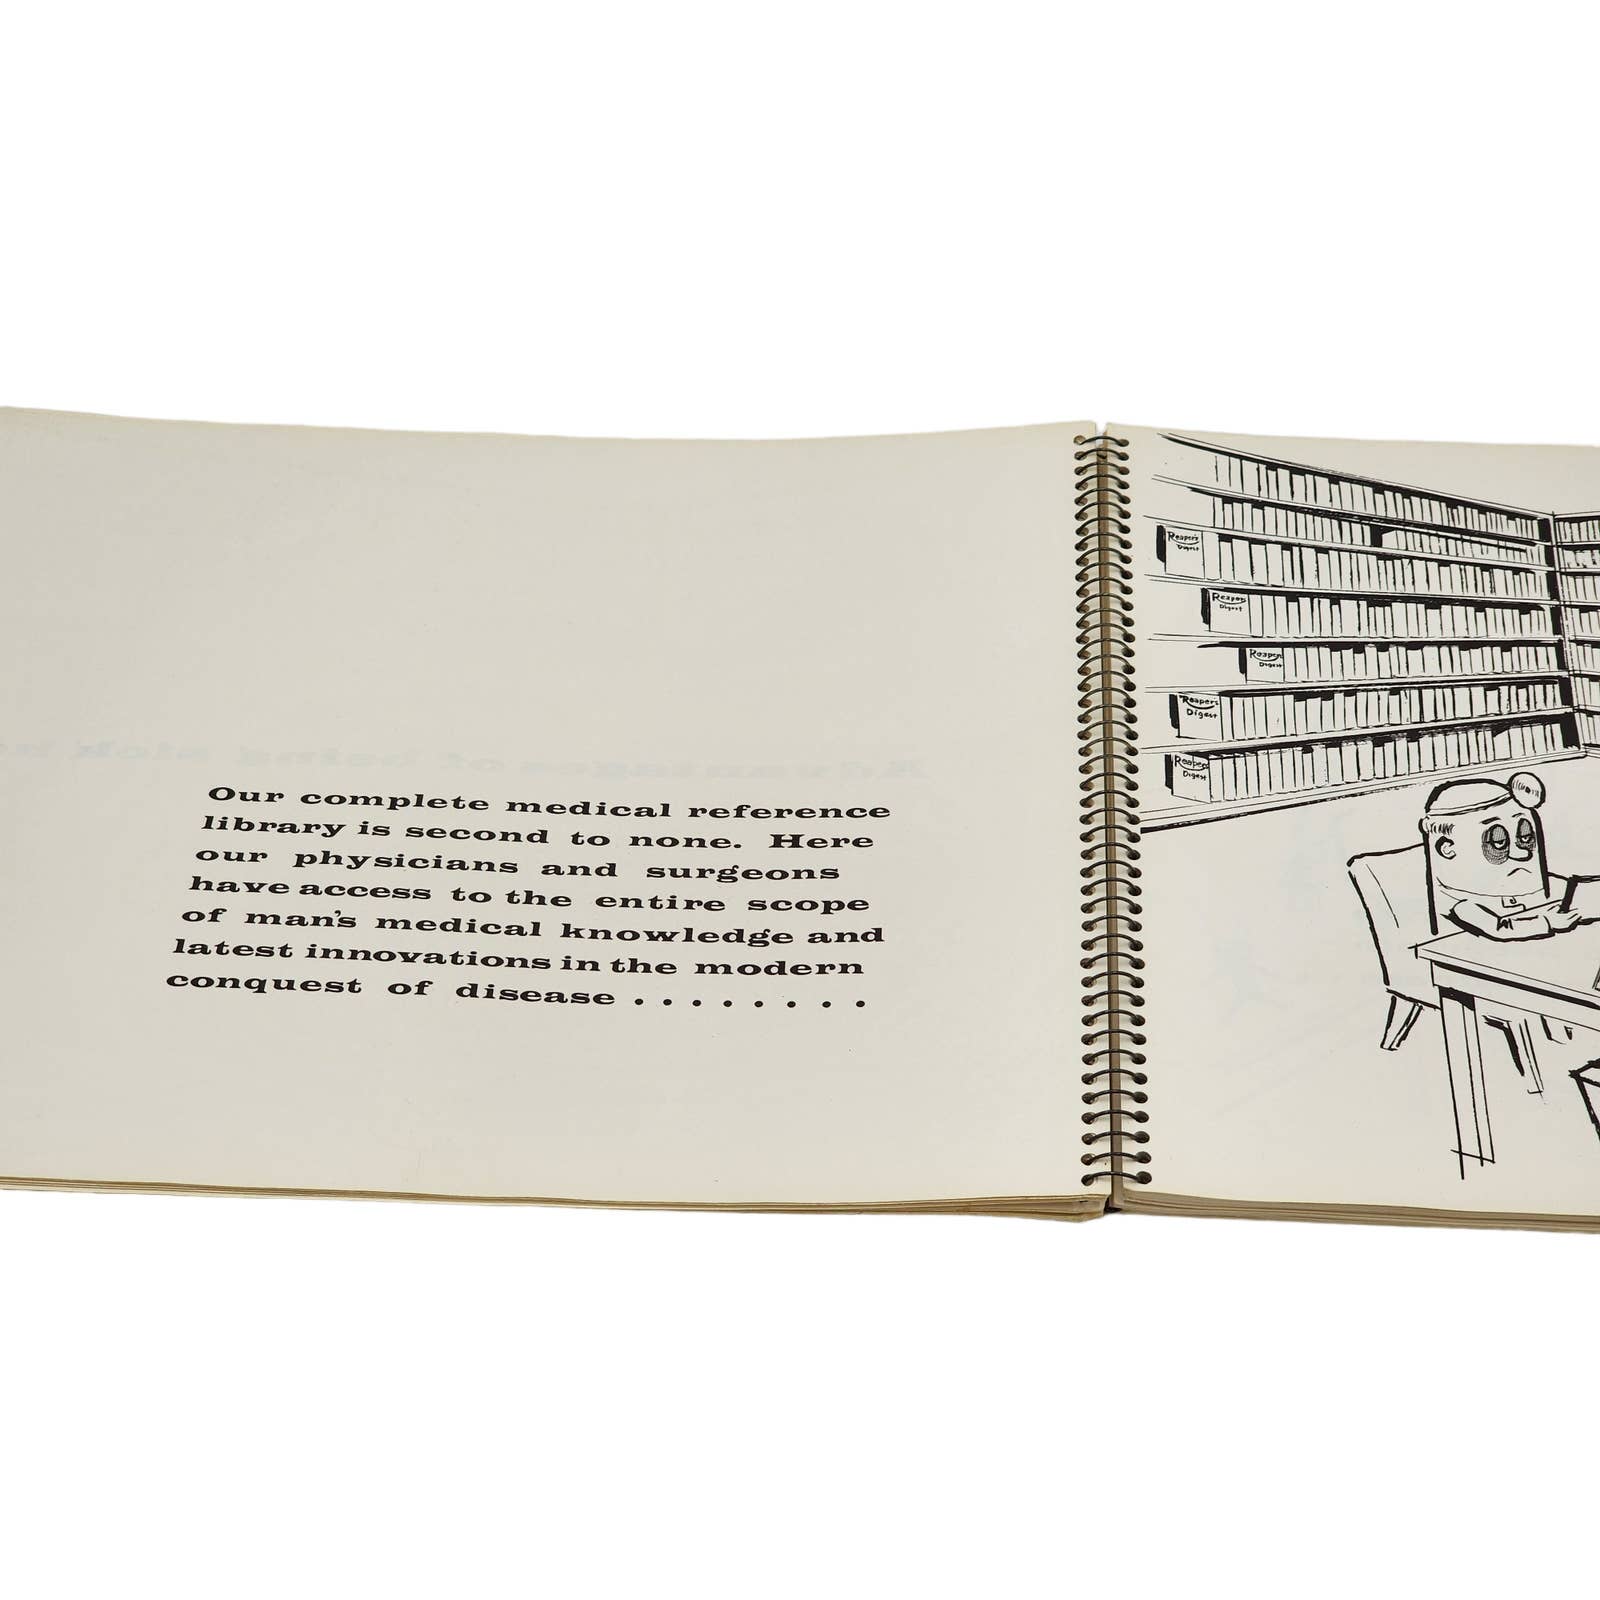 Our complete medical reference
library is second to none. Here
our physicians and surgeons
have access to the entire scope
of man's medical knowledge and
latest innovations in the modern
conquest of disease . . . . . . . .
Reaper's
Digest
Reapers
Digest
Reapers
Digest
Reapers
Digest
Reapers
Digest